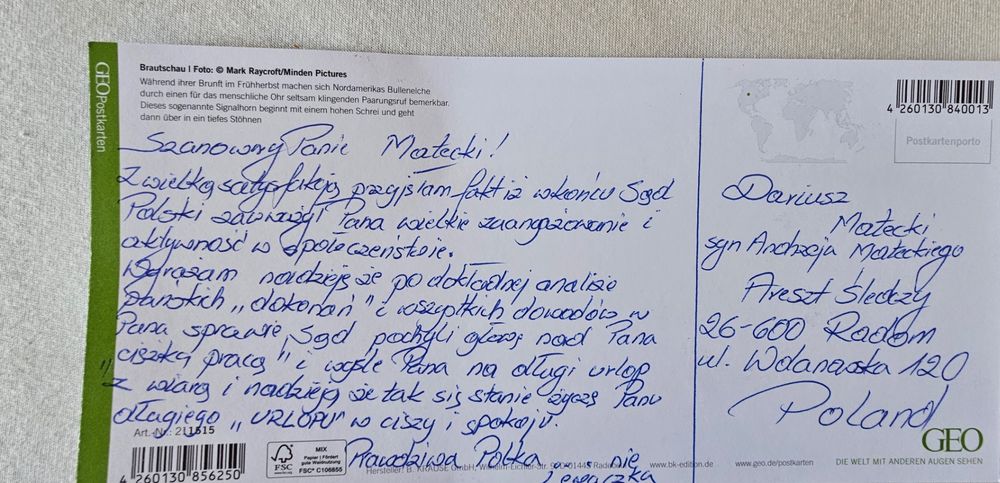 GEOPostkarten
Brautschau | Foto: © Mark Raycroft/Minden Pictures
Während ihrer Brunft im Frühherbst machen sich Nordamerikas Bullenelche
durch einen für das menschliche Ohr seltsam klingenden Paarungsruf bemerkbar.
Dieses sogenannte Signalhorn beginnt mit einem hohen Schrei und geht
dann über in ein tiefes Stöhnen
Szanowny Panie Małecki!
Z wielką satysfakcją przyjąłam fakt iż wkońcu Sąd
Polski zauważył Pana wielkie zaangażowanie i
aktywność w społeczeństwie.
Wyrażam nadzieję że po dokładnej analizie
Pańskich „dokonań" i wszystkich dowodów w
Pana sprawie, Sąd pochyli głowę nad Pana
„ciężką pracą" i wyśle Pana na długi urlop
z wiarą i nadzieją że tak się stanie życzę Panu
długiego „URLOPU" w ciszy i spokoju.
Prawdziwa Polka, a nie
Art.-Nr.: 211515
4 260130 856250
FSC
MIX
Papier | Fördert
gute Waldnutzung
FSC® C106855
Hersteller: B. KRAUSE GmbH, www.bk-edition.de
4 260130 840013
Postkartenporto
Dariusz
Małecki
syn Andrzeja Małeckiego
Areszt Śledczy
26-600 Radom
ul. Wolanowska 120
Poland
GEO
www.geo.de/postkarten DIE WELT MIT ANDEREN AUGEN SEHEN